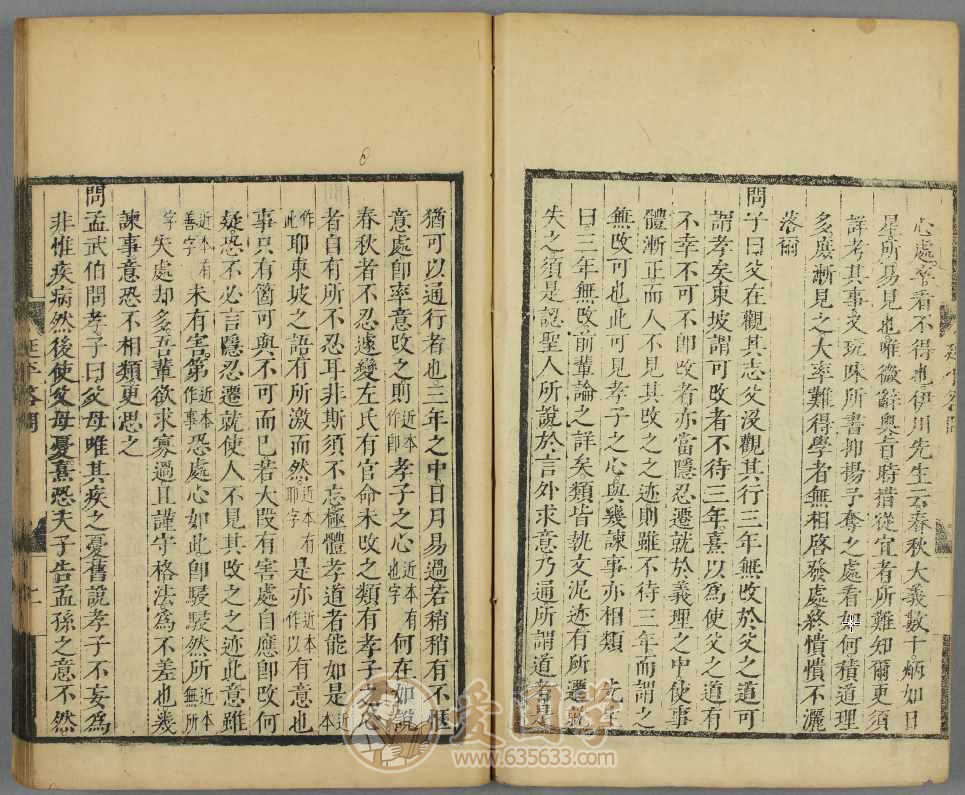 心處辛看不得也伊川先生云春秋大義數十炳如日
星所易見也唯微辭奧旨時措從宜者所難知爾更須
詳考其事又玩味所書抑揚予奪之處看如何積道理
多庶漸見之大率難得學者無相啓發處終憒憒不灑
落爾
問子曰父在觀其志父沒觀其行三年無改於父之道可
謂孝矣東坡謂可改者不待三年熹以爲使父之道有
不幸不可不即改者亦當隱忍遷就於義理之中使事
體漸正而人不見其改之之迹則雖不待三年而謂之
無改可也此可見孝子之心與幾諫事亦相類 先生
曰三年無改前輩論之詳矣類皆執文泥迹有所遷就
失之須是認聖人所說於言外求意乃通所謂道者是
猶可以通行者也三年之中日月易過若稍稍有不愜
意處即率意改之則近本作即孝子之心近本有也字何在如說
春秋者不忍遽變左氏有官命未改之類有孝子之心
者自有所不忍耳非斯須不忘極體孝道者能如是近本
作此耶東坡之語有所激而然近本有耶字是亦近本作以有意也
事只有箇可與不可而已若大段有害處自應即改何
疑恐不必言隱忍遷就使人不見其改之之迹此意雖
近本有善字未有害第近本作事恐處心如此即駸駸然所近本無所
字失處却多吾輩欲求寡過且謹守格法爲不差也幾
諫事意恐不相類更思之
問孟武伯問孝子曰父母唯其疾之憂舊說孝子不妄爲
非惟疾病然後使父母憂熹恐夫子告孟孫之意不然
延平答問
6
愛國學
www.635633.com